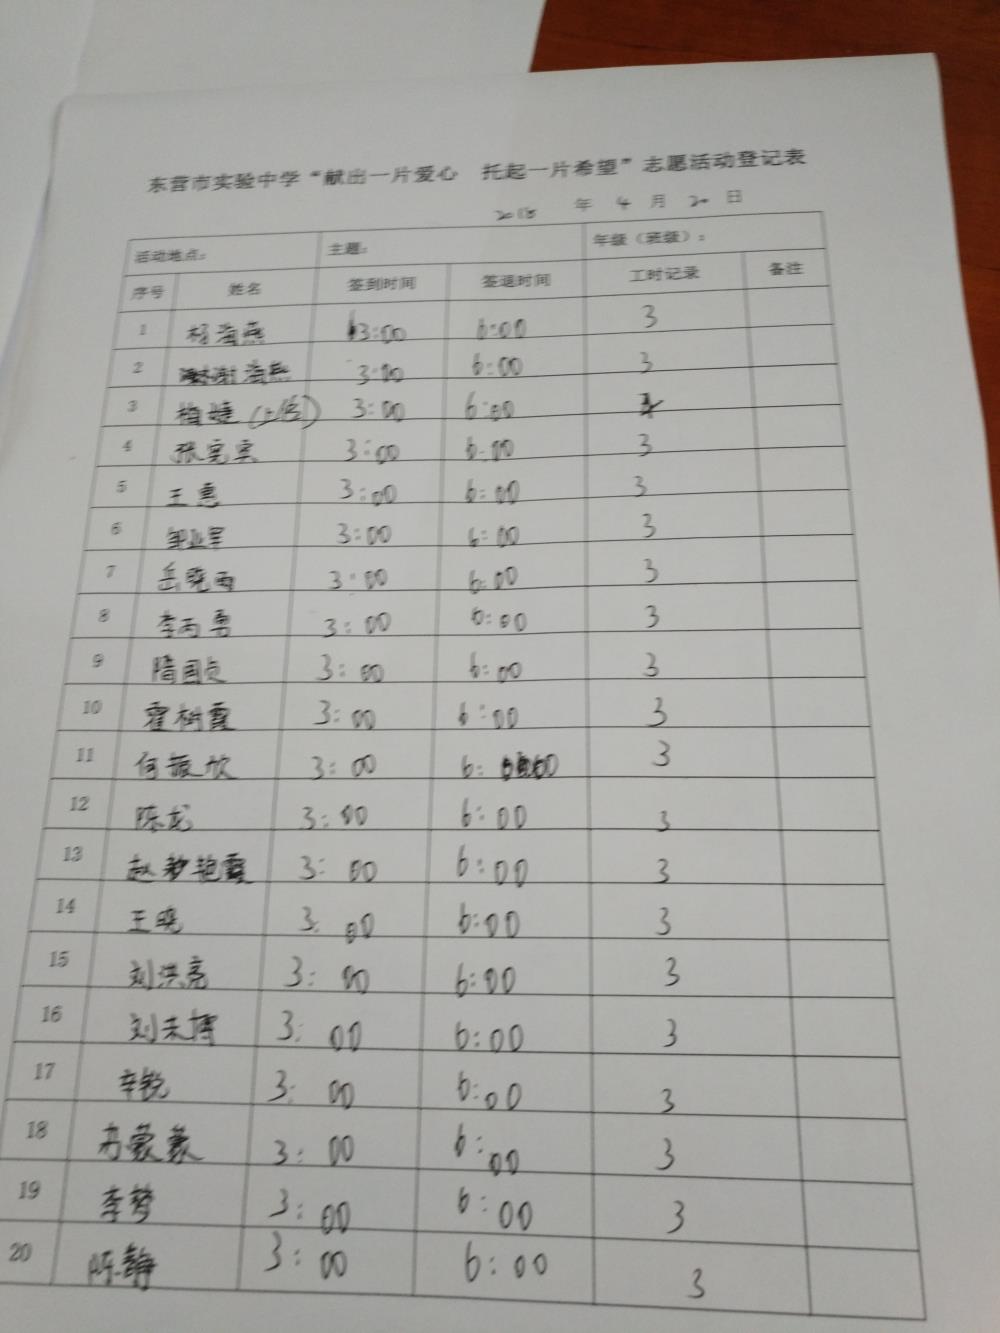 东营市实验中学“献出一片爱心 托起一片希望”志愿活动登记表
2018 年 4 月 20 日
活动地点： 主题： 年级（班级）：
序号 姓名 签到时间 签退时间 工时记录 备注
1 杨海燕 3:00 6:00 3
2 谢海燕 3:00 6:00 3
3 3:00 6:00
4 张宪实 3:00 6:00 3
5 王惠 3:00 6:00 3
6 邹亚军 3:00 6:00 3
7 岳晓雨 3:00 6:00 3
8 李丙勇 3:00 6:00 3
9 隋国贞 3:00 6:00 3
10 霍树霞 3:00 6:00 3
11 何振欣 3:00 6:00 3
12 陈龙 3:00 6:00 3
13 赵艳霞 3:00 6:00 3
14 王晓 3:00 6:00 3
15 刘洪亮 3:00 6:00 3
16 刘天博 3:00 6:00 3
17 辛锐 3:00 6:00 3
18 蒙蒙 3:00 6:00 3
19 李梦 3:00 6:00 3
20 陈静 3:00 6:00 3